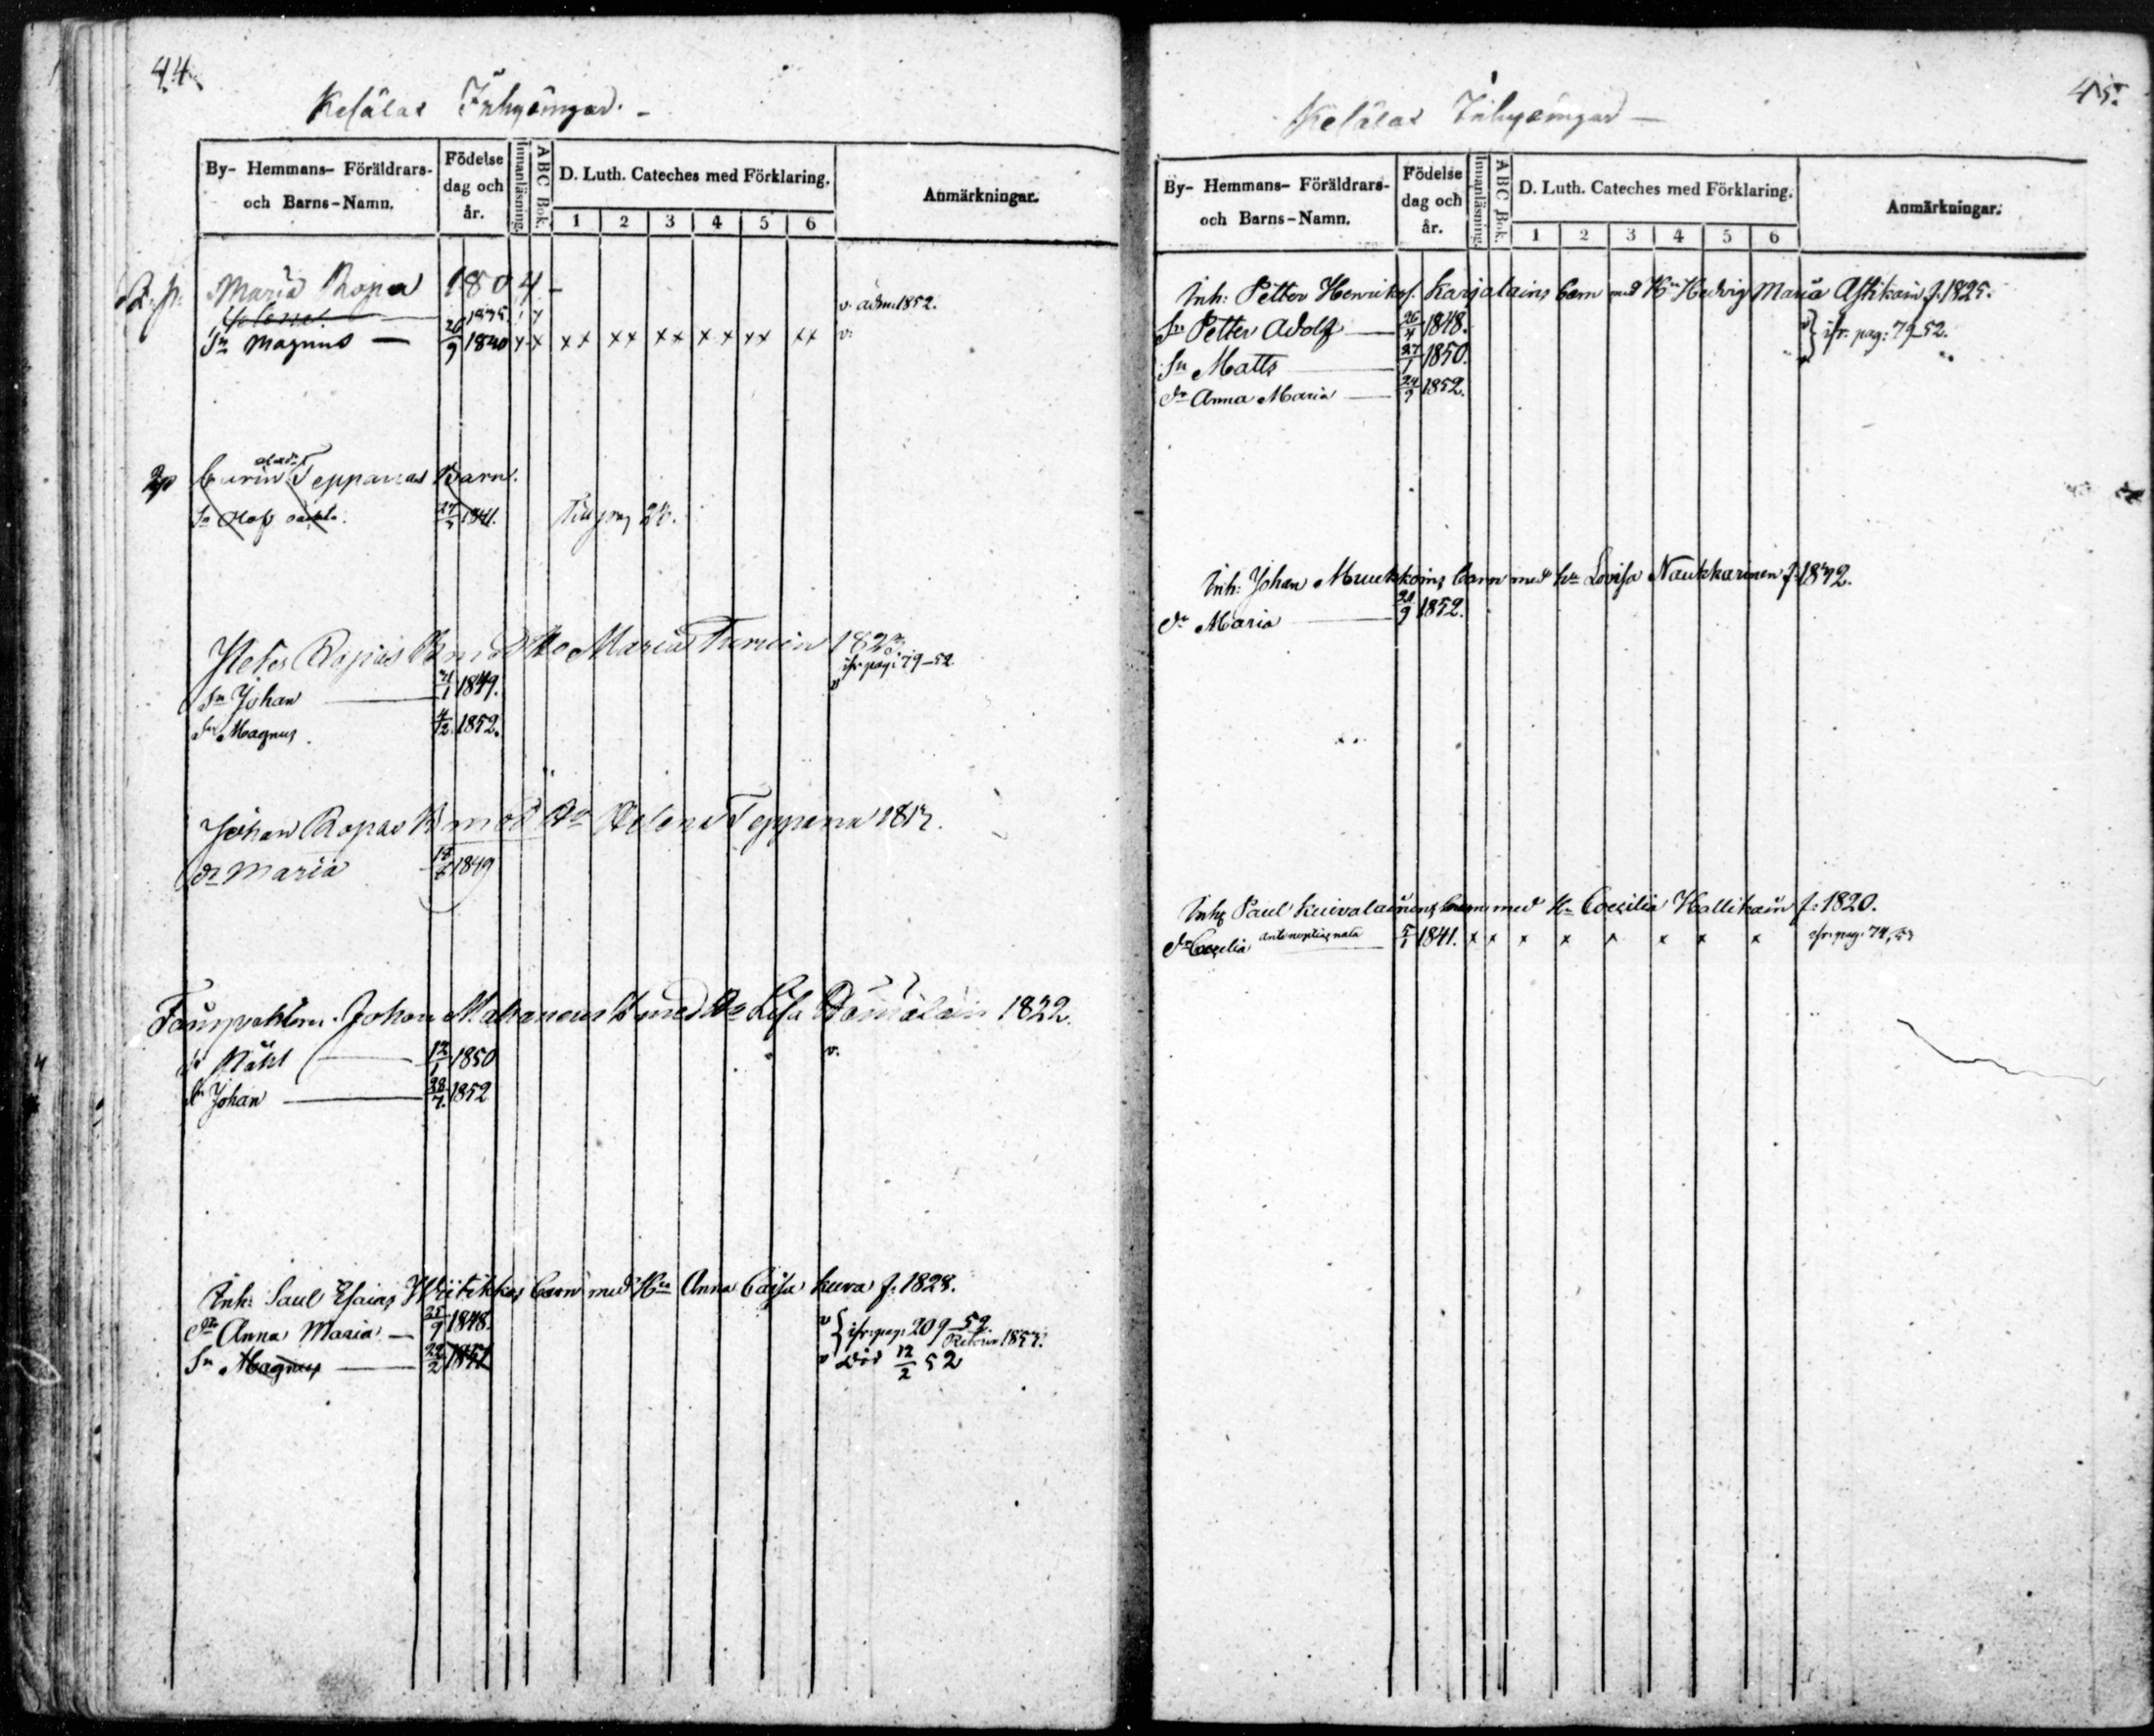 44
Kesälax Inhysingar. -
By- Hemmans- Föräldrars- och Barns-Namn.
Födelse dag och år.
Innanläsning.
ABC Bok.
D. Luth. Cateches med Förklaring.
1 2 3 4 5 6
Anmärkningar.
Maria Ropa 1804 -
1835. v. adm. 1852.
Sn Magnus — 26/9 1840 x x xx xx xx xx xx xx v.
Carin Teppanas Barn.
Sn Olof 1841. Till pag 23.
Peter Ropas B med Ho Maria 1823.
ifr. pag: 79-52.
Sn Johan 1849. v
Sn Magnus 4/2 1852.
Johan Ropas B med Ho Helena Teppana 181
dr Maria 1849
Johan Makanens B med Ho Lisa 1822.
12/1 1850 v.
Sn Johan 28/7 1852
Inh: Paul Esaias Wiitikkas barn med Hu Anna Caisa Kura f. 1828.
dr Anna Maria — 25/9 1848. v } ifr: pag: 209-52
1857.
Sn Magnus — 22/2 1851 v död 12/2 52
45.
Kesälax Inhysingar —
By- Hemmans- Föräldrars- och Barns-Namn.
Födelse dag och år.
Innanläsning.
ABC Bok.
D. Luth. Cateches med Förklaring.
1 2 3 4 5 6
Anmärkningar.
Inh: Petter Henriksf. Karjalains barn med Hu Hedvig Maria Astikain f. 1825.
Sn Petter Adolf — 26/4 1848. v } ifr. pag: 79-52.
Sn Matts — 27/1 1850.
dr Anna Maria — 24/9 1852.
Inh: Johan Muukkoins barn med hu Lovisa Naukkarinen f.
dr Maria — 1852.
Inhs Paul Kuivalainens barn med Hu Coecilia Hallikain f. 1820.
dr Coecilia antenuptias nata 5/1 1841. x x x x x x x x ifr. pag. 74, 53